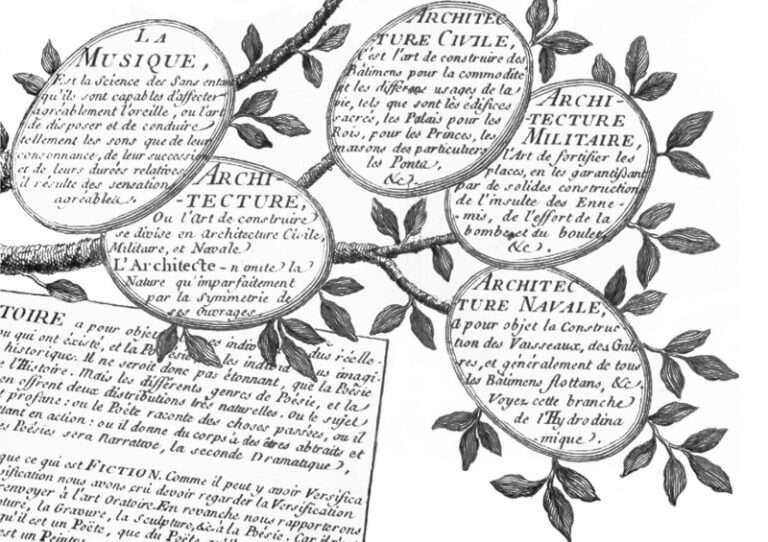 LA
MUSIQUE,
Est la Science des Sons entant
qu'ils sont capables d'affecter
agréablement l'oreille, ou l'art
de disposer et de conduire
tellement les sons que de leur
consonnance, de leur succession
et de leurs durées relatives
il résulte des sensations
agréables.
ARCHITEC-
TURE CIVILE,
C'est l'art de construire des
Bâtimens pour la commodité
et les différens usages de la
vie, tels que sont lès édifices
sacrés, les Palais pour les
Rois, pour les Princes, les
maisons des particuliers
les Ponts,
&c.
ARCHI-
TECTURE
MILITAIRE,
l'Art de fortifier les
places, en les garantissant
par de solides construction
de l'insulte des Enne-
mis, de l'effort de la
bombe et du boulet,
&c.
ARCHI-
-TECTURE,
Ou l'art de construire
se divise en Architecture Civile,
Militaire, et Navale
L'Architecte - n'imite la
Nature qu'imparfaitement
par la Symmetrie de
ses Ouvrages
ARCHITEC
TURE NAVALE,
a pour objet la Construc-
tion des Vaisseaux, des Gale
res, et généralement de tous
les Bâtimens flottans, &c.
Voyez cette branche
de l'Hydrodina
mique.
TOIRE a pour objet les individus réelle-
ou qui ont existé, et la Poésie les individus imagi-
historiques. Il ne seroit donc pas étonnant, que la Poësie
l'Histoire. Mais les différents genres de Poésie, et la
en offrent deux distributions très naturelles. ou le sujet
profane: ou le Poëte raconte des choses passées, ou il
tant en action: ou il donne du corps à des êtres abstraits et
es Poésies sera Narrative, la seconde Dramatique,
que ce qui est FICTION. Comme il peut y avoir Versifica
sification nous avons crû devoir regarder la Versification
renvoyer à l'art Oratoire. En revanche nous rapporterons
ture, la Gravure, la Sculpture, &c à la Poésie. Car il n'est
qu'il est un Poëte, que du Poëte
est un Peintre